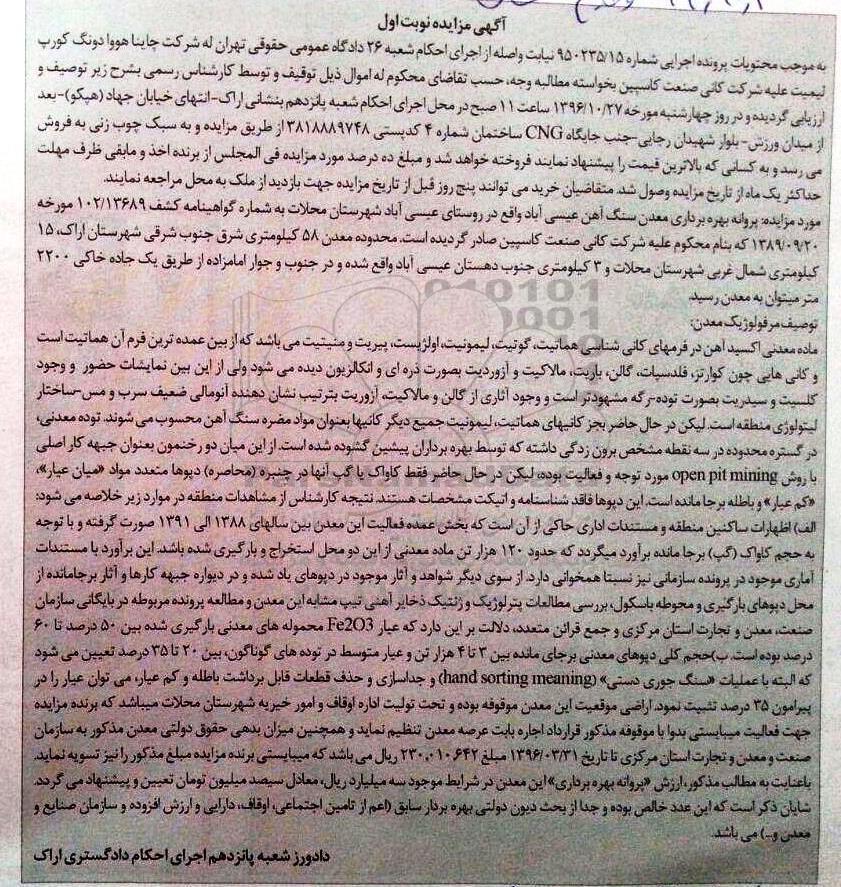 آگهی مزایده نوبت اول
به موجب محتویات پرونده اجرایی شماره ۹۵۰۲۳۵/۱۵ نیابت واصله از اجرای احکام شعبه ۲۶ دادگاه عمومی حقوقی تهران له شرکت چاینا هووا دونگ کورپ
لیمیت علیه شرکت کانی صنعت کاسپین بخواسته مطالبه وجه، حسب تقاضای محکوم له اموال ذیل توقیف و توسط کارشناس رسمی بشرح زیر توصیف و
ارزیابی گردیده و در روز چهارشنبه مورخه ۱۳۹۶/۱۰/۲۷ ساعت ۱۱ صبح در محل اجرای احکام شعبه پانزدهم بنشانی اراک-انتهای خیابان جهاد (هپکو)-بعد
از میدان ورزش- بلوار شهیدان رجایی-جنب جایگاه CNG ساختمان شماره ۴ کدپستی ۳۸۱۸۸۸۹۷۴۸ از طریق مزایده و به سبک چوب زنی به فروش
می رسد و به کسانی که بالاترین قیمت را پیشنهاد نمایند فروخته خواهد شد و مبلغ ده درصد مورد مزایده فی المجلس از برنده اخذ و مابقی ظرف مهلت
حداکثر یک ماه از تاریخ مزایده وصول شد. متقاضیان خرید می توانند پنج روز قبل از تاریخ مزایده جهت بازدید از ملک به محل مراجعه نمایند.
مورد مزایده: پروانه بهره برداری معدن سنگ آهن عیسی آباد واقع در روستای عیسی آباد شهرستان محلات به شماره گواهینامه کشف ۱۰۲/۱۳۶۸۹ مورخه
۱۳۸۹/۰۹/۲۰ که بنام محکوم علیه شرکت کانی صنعت کاسپین صادر گردیده است. محدوده معدن ۵۸ کیلومتری شرق جنوب شرقی شهرستان اراک، ۱۵
کیلومتری شمال غربی شهرستان محلات و ۳ کیلومتری جنوب دهستان عیسی آباد واقع شده و در جنوب و جوار امامزاده از طریق یک جاده خاکی ۲۲۰۰
متر میتوان به معدن رسید.
توصیف مرفولوژیک معدن:
ماده معدنی اکسید آهن در فرمهای کانی شناسی هماتیت، گوتیت، لیمونیت، اولژیست، پیریت و منیتیت می باشد که از بین عمده ترین فرم آن هماتیت است
و کانی هایی چون کوارتز، فلدسپات، گالن، باریت، مالاکیت و آزوردیت بصورت ذره ای و انکالزیون دیده می شود ولی از این بین نمایشات حضور و وجود
کلسیت و سیدریت بصورت توده-رگه مشهودتر است و وجود آثاری از گالن و مالاکیت، آزوریت بترتیب نشان دهنده آنومالی ضعیف سرب و مس-ساختار
لیتولوژی منطقه است. لیکن در حال حاضر بجز کانیهای هماتیت، لیمونیت جمیع دیگر کانیها بعنوان مواد مضره سنگ آهن محسوب می شوند. توده معدنی،
در گستره محدوده در سه نقطه مشخص برون زدگی داشته که توسط بهره برداران پیشین گشوده شده است. از این میان دو رخنمون بعنوان جبهه کار اصلی
با روش open pit mining مورد توجه و فعالیت بوده، لیکن در حال حاضر فقط کاواک یا گپ آنها در چنبره (محاصره) دپوها متعدد مواد «میان عیار»،
«کم عیار» و باطله برجا مانده است. این دپوها فاقد شناسنامه و اتیکت مشخصات هستند. نتیجه کارشناس از مشاهدات منطقه در موارد زیر خلاصه می شود:
الف) اظهارات ساکنین منطقه و مستندات اداری حاکی از آن است که بخش عمده فعالیت این معدن بین سالهای ۱۳۸۸ الی ۱۳۹۱ صورت گرفته و با توجه
به حجم کاواک (گپ) برجا مانده برآورد میگردد که حدود ۱۲۰ هزار تن ماده معدنی از این دو محل استخراج و بارگیری شده باشد. این برآورد با مستندات
آماری موجود در پرونده سازمانی نیز نسبتا همخوانی دارد. از سوی دیگر شواهد و آثار موجود در دپوهای یاد شده و در دیواره جبهه کارها و آثار برجامانده از
محل دپوهای بارگیری و محوطه باسکول، بررسی مطالعات پترلوژیک و ژنتیک ذخایر آهنی تیپ مشابه این معدن و مطالعه پرونده مربوطه در بایگانی سازمان
صنعت، معدن و تجارت استان مرکزی و جمع قرائن متعدد، دلالت بر این دارد که عیار Fe2O3 محموله های معدنی بارگیری شده بین ۵۰ درصد تا ۶۰
درصد بوده است. ب)حجم کلی دپوهای معدنی برجای مانده بین ۳ تا ۴ هزار تن و عیار متوسط در توده های گوناگون، بین ۲۰ تا ۳۵ درصد تعیین می شود
که البته با عملیات «سنگ جوری دستی» (hand sorting meaning) و جداسازی و حذف قطعات قابل برداشت باطله و کم عیار، می توان عیار را در
پیرامون ۳۵ درصد تثبیت نمود. اراضی موقعیت این معدن موقوفه بوده و تحت تولیت اداره اوقاف و امور خیریه شهرستان محلات میباشد که برنده مزایده
جهت فعالیت میبایستی بدوا با موقوفه مذکور قرارداد اجاره بابت عرصه معدن تنظیم نماید و همچنین میزان بدهی حقوق دولتی معدن مذکور به سازمان
صنعت و معدن و تجارت استان مرکزی تا تاریخ ۱۳۹۶/۰۳/۳۱ مبلغ ۲۳۰,۰۱۰,۶۴۲ ریال می باشد که میبایستی برنده مزایده مبلغ مذکور را نیز تسویه نماید.
باعنایت به مطالب مذکور، ارزش «پروانه بهره برداری» این معدن در شرایط موجود سه میلیارد ریال، معادل سیصد میلیون تومان تعیین و پیشنهاد می گردد.
شایان ذکر است که این عدد خالص بوده و جدا از بحث دیون دولتی بهره بردار سابق (اعم از تامین اجتماعی، اوقاف، دارایی و ارزش افزوده و سازمان صنایع و
معدن و...) می باشد.
دادورز شعبه پانزدهم اجرای احکام دادگستری اراک